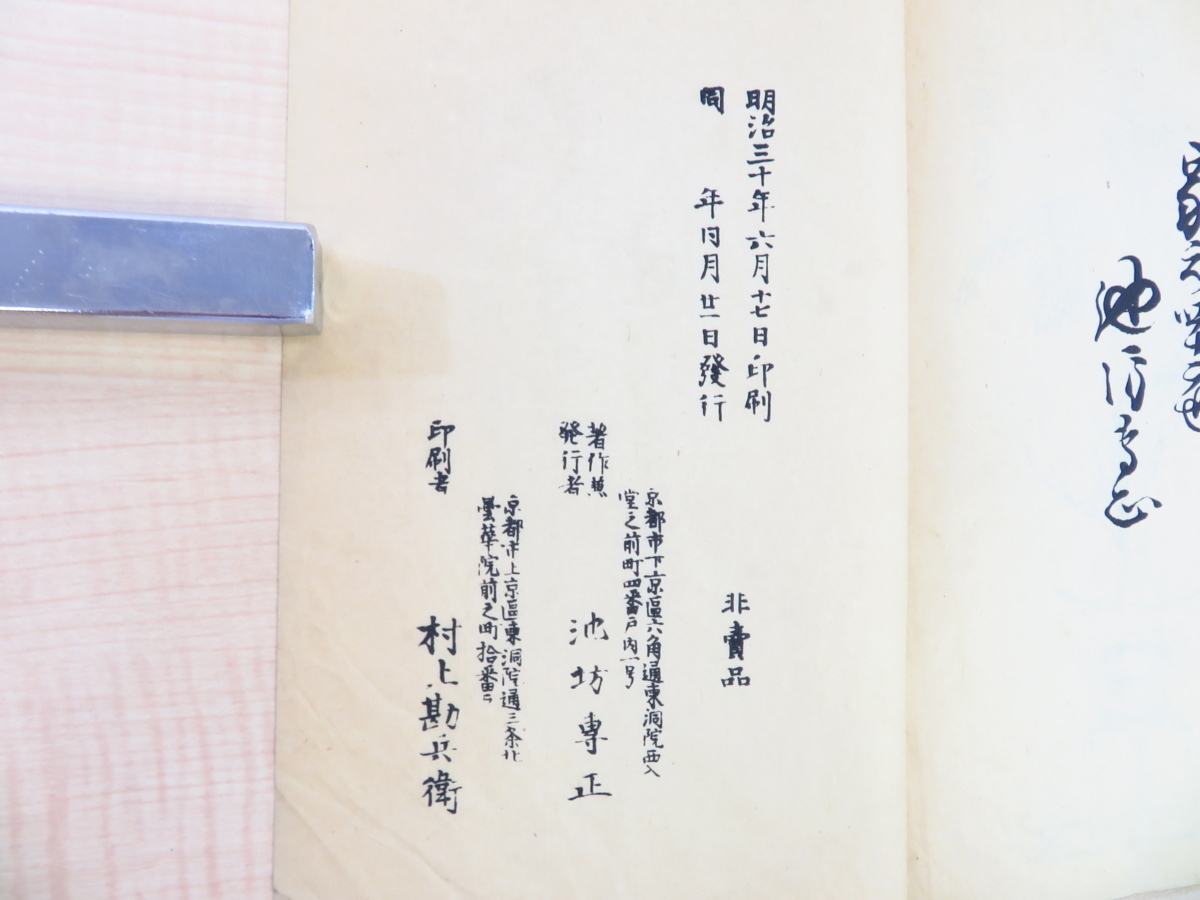 池坊専正
明治三十年六月十七日印刷
同 年同月廿一日發行
非賣品
京都市下京區六角通東洞院西入
堂之前町四番戸内一号
著作兼
発行者
池坊專正
京都市上京區東洞院通三条北
曇華院前之町拾番戸
印刷者
村上勘兵衛